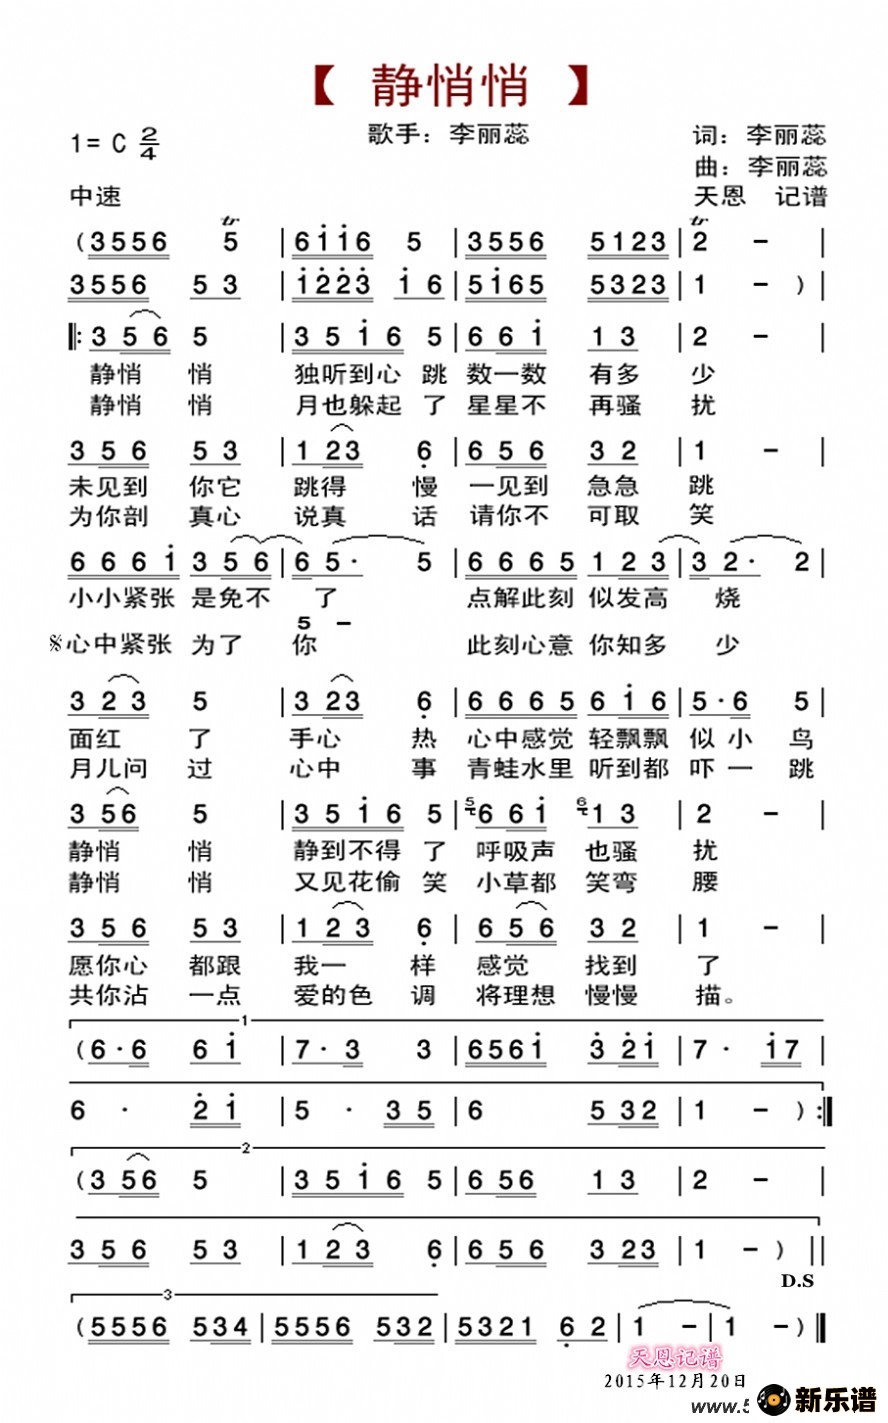 【 静悄悄 】
1= C 2/4 歌手：李丽蕊 词：李丽蕊
曲：李丽蕊
中速 天恩 记谱
(3556 5 | 6i̇i̇6 5 | 3556 5123 | 2 − |
3556 53 | i̇2̇2̇3̇ i̇6 | 5i̇65 5323 | 1 − ) |
‖: 356 5 | 35i̇6 5 | 66i̇ 13 | 2 − |
静悄 悄 独听到心 跳 数一数 有多 少
静悄 悄 月也躲起 了 星星不 再骚 扰
356 53 | 123 6̣ | 656 32 | 1 − |
未见到 你它 跳得 慢 一见到 急急 跳
为你剖 真心 说真 话 请你不 可取 笑
666i̇ 356 | 65· 5 | 6665 123 | 32· 2 |
小小紧张 是免不 了 点解此刻 似发高 烧
5 −
𝄋心中紧张 为了 你 此刻心意 你知多 少
323 5 | 323 6̣ | 6665 6i̇6 | 5·6 5 |
面红 了 手心 热 心中感觉 轻飘飘 似小 鸟
月儿问 过 心中 事 青蛙水里 听到都 吓一 跳
356 5 | 35i̇6 5 | 5 66i̇ 6 13 | 2 − |
静悄 悄 静到不得 了 呼吸声 也骚 扰
静悄 悄 又见花偷 笑 小草都 笑弯 腰
356 53 | 123 6̣ | 656 32 | 1 − |
愿你心 都跟 我一 样 感觉 找到 了
共你沾 一点 爱的色 调 将理想 慢慢 描。
1
(6·6 6i̇ | 7·3 3 | 656i̇ 3̇2̇i̇ | 7· i̇7 |
6 · 2̇i̇ | 5 · 35 | 6 532 | 1 − ) :‖
2
(356 5 | 35i̇6 5 | 656 13 | 2 − |
356 53 | 123 6̣ | 656 323 | 1 − ) ‖
D.S
3
(5556 534 | 5556 532 | 5321 6̣2 | 1 − | 1 − ) ‖
天恩记谱
2015年12月20日
www.5
新乐谱